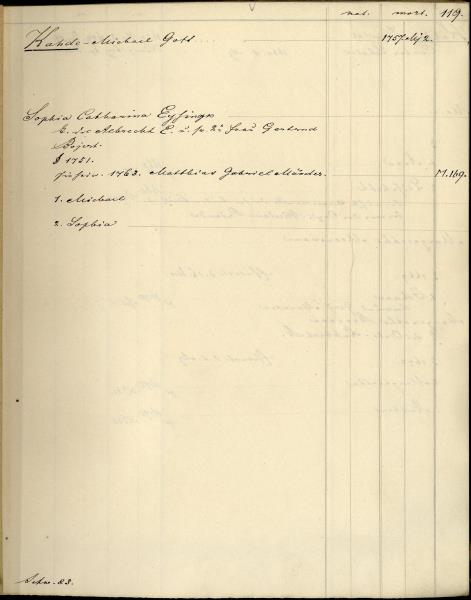 nat. mort. 119.
Kahde Michael Gott... 1757 Mÿ 2.
Sophia Catharina Eyfings
t. d. Albrecht E. u. fr. 2ⁿ Frau Gertrud
Bojert.
1751.
1763. Matthias Gabriel M. 169.
1. Michael
2. Sophia
83.